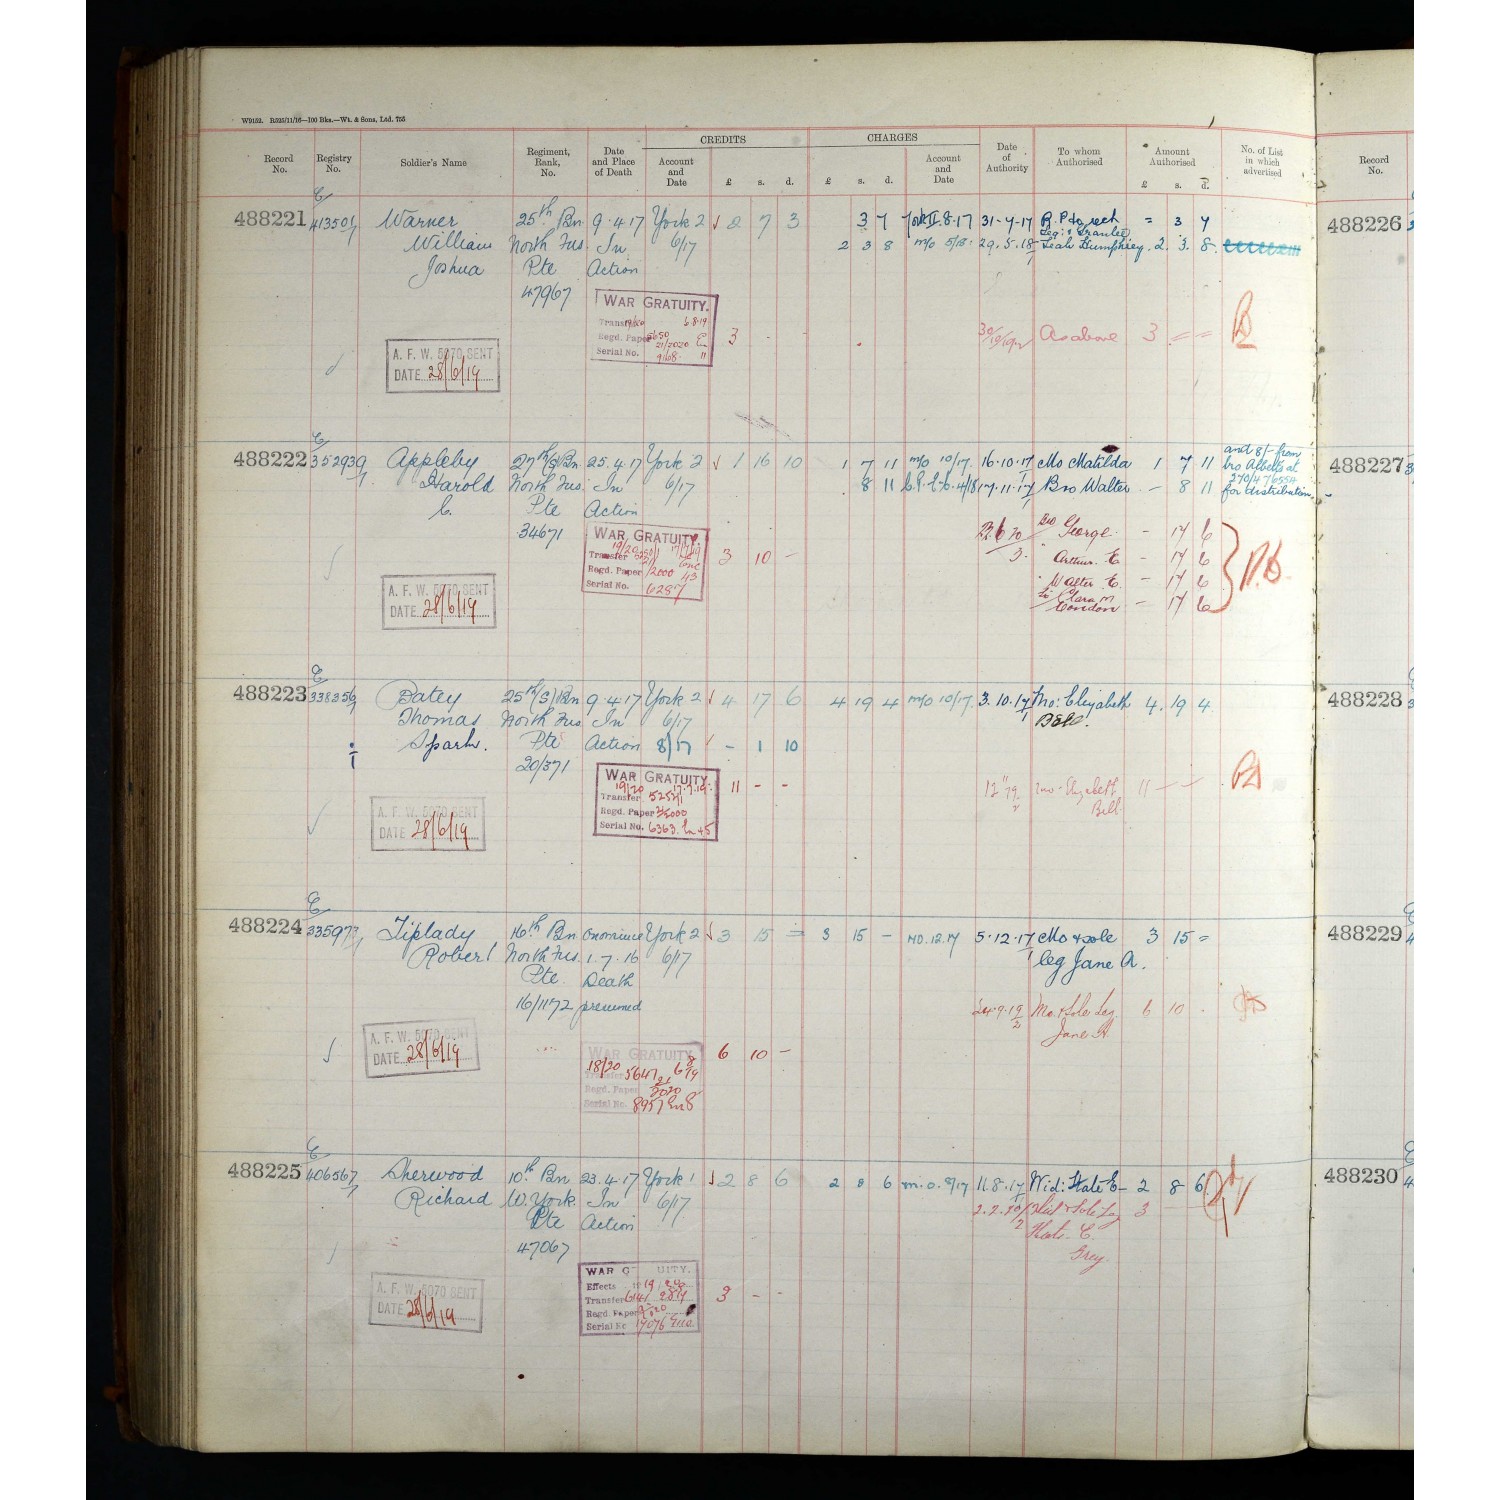 W9152. R525/11/16—100 Bks.—Wt. & Sons, Ltd. 755
CREDITS CHARGES
Record No. Registry No. Soldier's Name Regiment, Rank, No. Date and Place of Death Account and Date £ s. d. £ s. d. Account and Date Date of Authority To whom Authorised Amount Authorised £ s. d. No. of List in which advertised Record No.
488221 E/ 413501/7 Warner 25th Bn 9.4.17 York 2 2 7 3 3 7 8.17 31-7-17 = 3 7 488226
William North Fus. In 6/17 2 3 8 m/o 5/18 29.5.18 Leah Humphrey 2. 3. 8.
Joshua Pte Action
47967
WAR GRATUITY.
Transfer 19/20 6 8.19
Regd. Paper 21/2020
Serial No. 9168 11
3 - -
As above 3 = =
A. F. W. 5070 SENT
DATE 28/6/19
488222 E/ 352939/7 Appleby 27th (S) Bn 25.4.17 York 2 1 16 10 1 7 11 m/o 10/17. 16.10.17 Mo Matilda 1 7 11 and 8/- from 488227
Harold North Fus. In 6/17 8 11 4/18 17.11.17 Bro Walter - 8 11 bro Albert at
C. Pte Action for distribution
34671
WAR GRATUITY.
Transfer 19/20
Regd. Paper /2000
Serial No. 6287
3 10 -
Bro George - 17 6
Arthur E. - 17 6
Walter E. - 17 6
Si Clara M Condon - 17 6
A. F. W. 5070 SENT
DATE 28/6/19
488223 E/ 338356/7 Batey 25th (S) Bn 9.4.17 York 2 4 17 6 4 19 4 m/o 10/17. 3.10.17 Mo: Elizabeth 4. 19 4. 488228
Thomas North Fus In 6/17 Bell.
Spark. Pte Action 8/17 - 1 10
20/371
WAR GRATUITY.
Transfer 19/20 5252/1 17.7.19
Regd. Paper /2000
Serial No. 6363. 45
11 - -
mo. Elizabeth Bell 11 - -
A. F. W. 5070 SENT
DATE 28/6/19
488224 E/ 335973/7 Tiplady 16th Bn On or since York 2 3 15 = 3 15 - MO.12.17 5.12.17 Mo & sole 3 15 = 488229
Robert North Fus. 1.7.16 6/17 leg Jane A.
Pte Death
16/1172 presumed
24.9.19 Mo. & Sole Leg. 6 10
Jane A.
WAR GRATUITY.
Transfer 18/20 5647 6 8/19
Regd. Paper 21/2020
Serial No. 8957
6 10 -
A. F. W. 5070 SENT
DATE 28/6/19
488225 E/ 406567/7 Sherwood 10th Bn 23.4.17 York 1 2 8 6 2 8 6 m.o. 8/17 11.8.17 Wid: Kate E- 2 8 6 488230
Richard W. York. In 6/17 2.2.20 Wid & Sole Leg 3
Pte Action Kate E.
47067 Grey
WAR GRATUITY.
Effects 19/20
Transfer 6141
Regd. Paper
Serial No 19076
3 - -
A. F. W. 5070 SENT
DATE 28/6/19